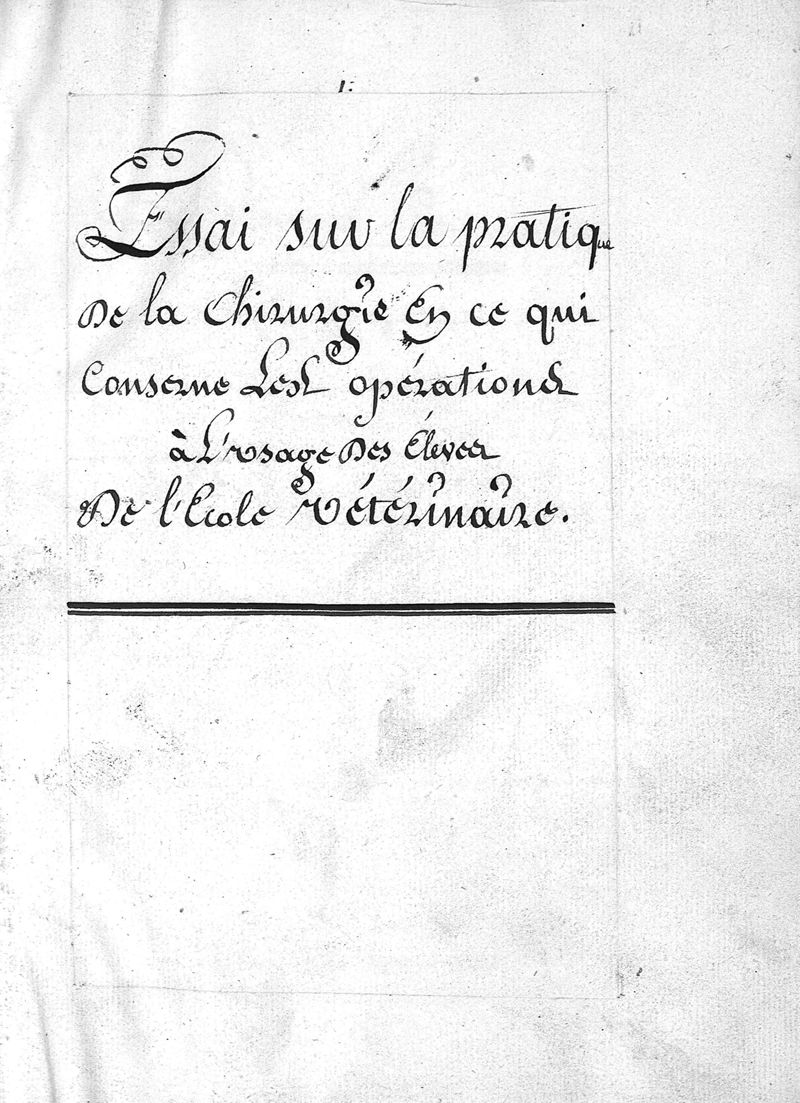 1:
Essai sur la pratique
De la Chirurgie En ce qui
Conserne Les opérations
à L'Usage Des Éleves
De l'Ecole Vétérinaire.